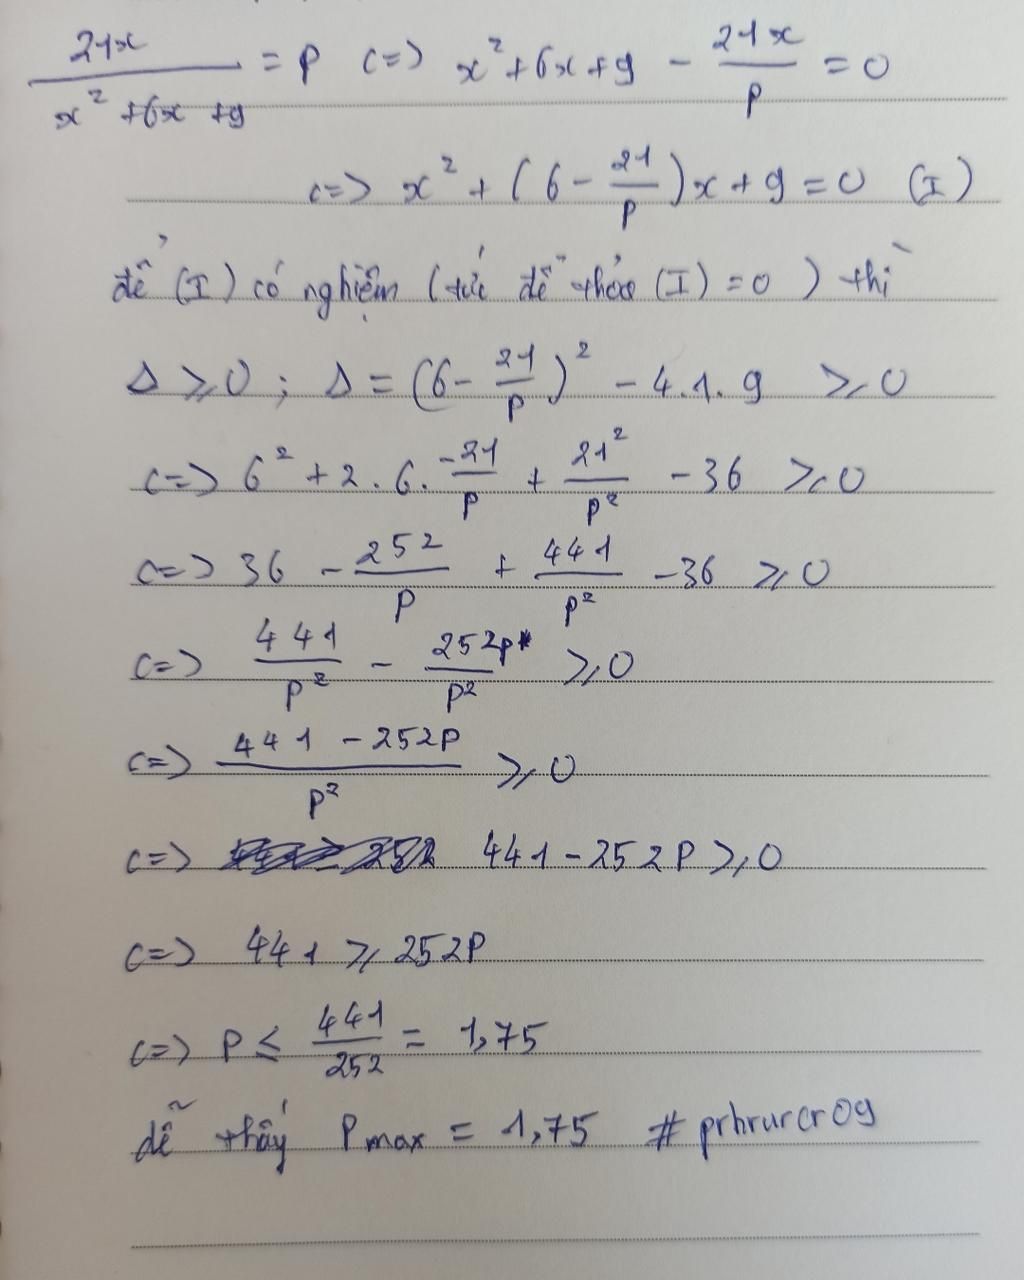 21x / (x² + 6x + 9) = P <=> x² + 6x + 9 - 21x/P = 0
<=> x² + (6 - 21/P)x + 9 = 0 (I)
để (I) có nghiệm (tức để thỏa (I) = 0) thì
Δ ≥ 0 ; Δ = (6 - 21/P)² - 4.1.9 ≥ 0
<=> 6² + 2.6.-21/P + 21²/P² - 36 ≥ 0
<=> 36 - 252/P + 441/P² - 36 ≥ 0
<=> 441/P² - 252P/P² ≥ 0
<=> (441 - 252P)/P² ≥ 0
<=> 441 - 252P ≥ 0
<=> 441 ≥ 252P
<=> P ≤ 441/252 = 1,75
dễ thấy Pmax = 1,75 #prhrurcr09